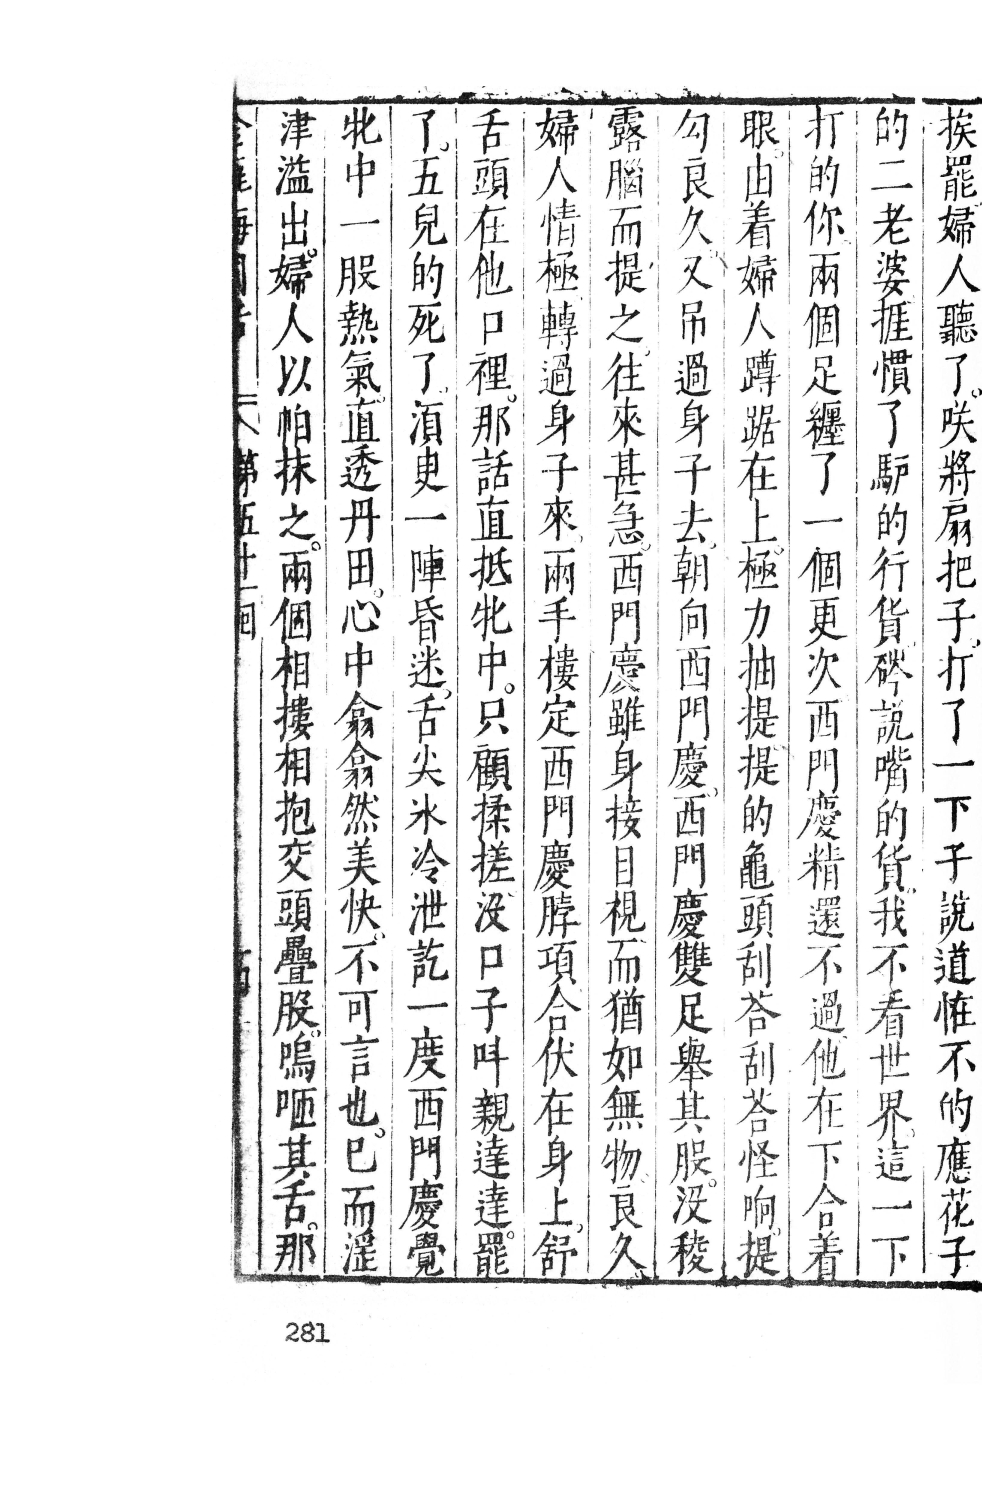 挨罷婦人聽了咲將扇把子打了一下子說道恠不的應花子
的二老婆捱慣了馿的行貨硶說嘴的貨我不看世界這一下
打的你兩個足纏了一個更次西門慶精還不過他在下合着
眼由着婦人蹲踞在上極力抽提提的龜頭刮荅刮荅怪响提
勾良久又吊過身子去朝向西門慶西門慶雙足舉其股沒稜
露腦而提之往來甚急西門慶雖身接目視而猶如無物良久
婦人情極轉過身子來兩手樓定西門慶脖項合伏在身上舒
舌頭在他口裡那話直抵牝中只顧揉搓沒口子叫親達達罷
了五兒的死了湏臾一陣昏迷舌尖氷冷泄訖一度西門慶覺
牝中一股熱氣直透丹田心中翕翕然美快不可言也已而淫
津溢出婦人以帕抹之兩個相摟相抱交頭疊股嗚咂其舌那
第五十一囘
281